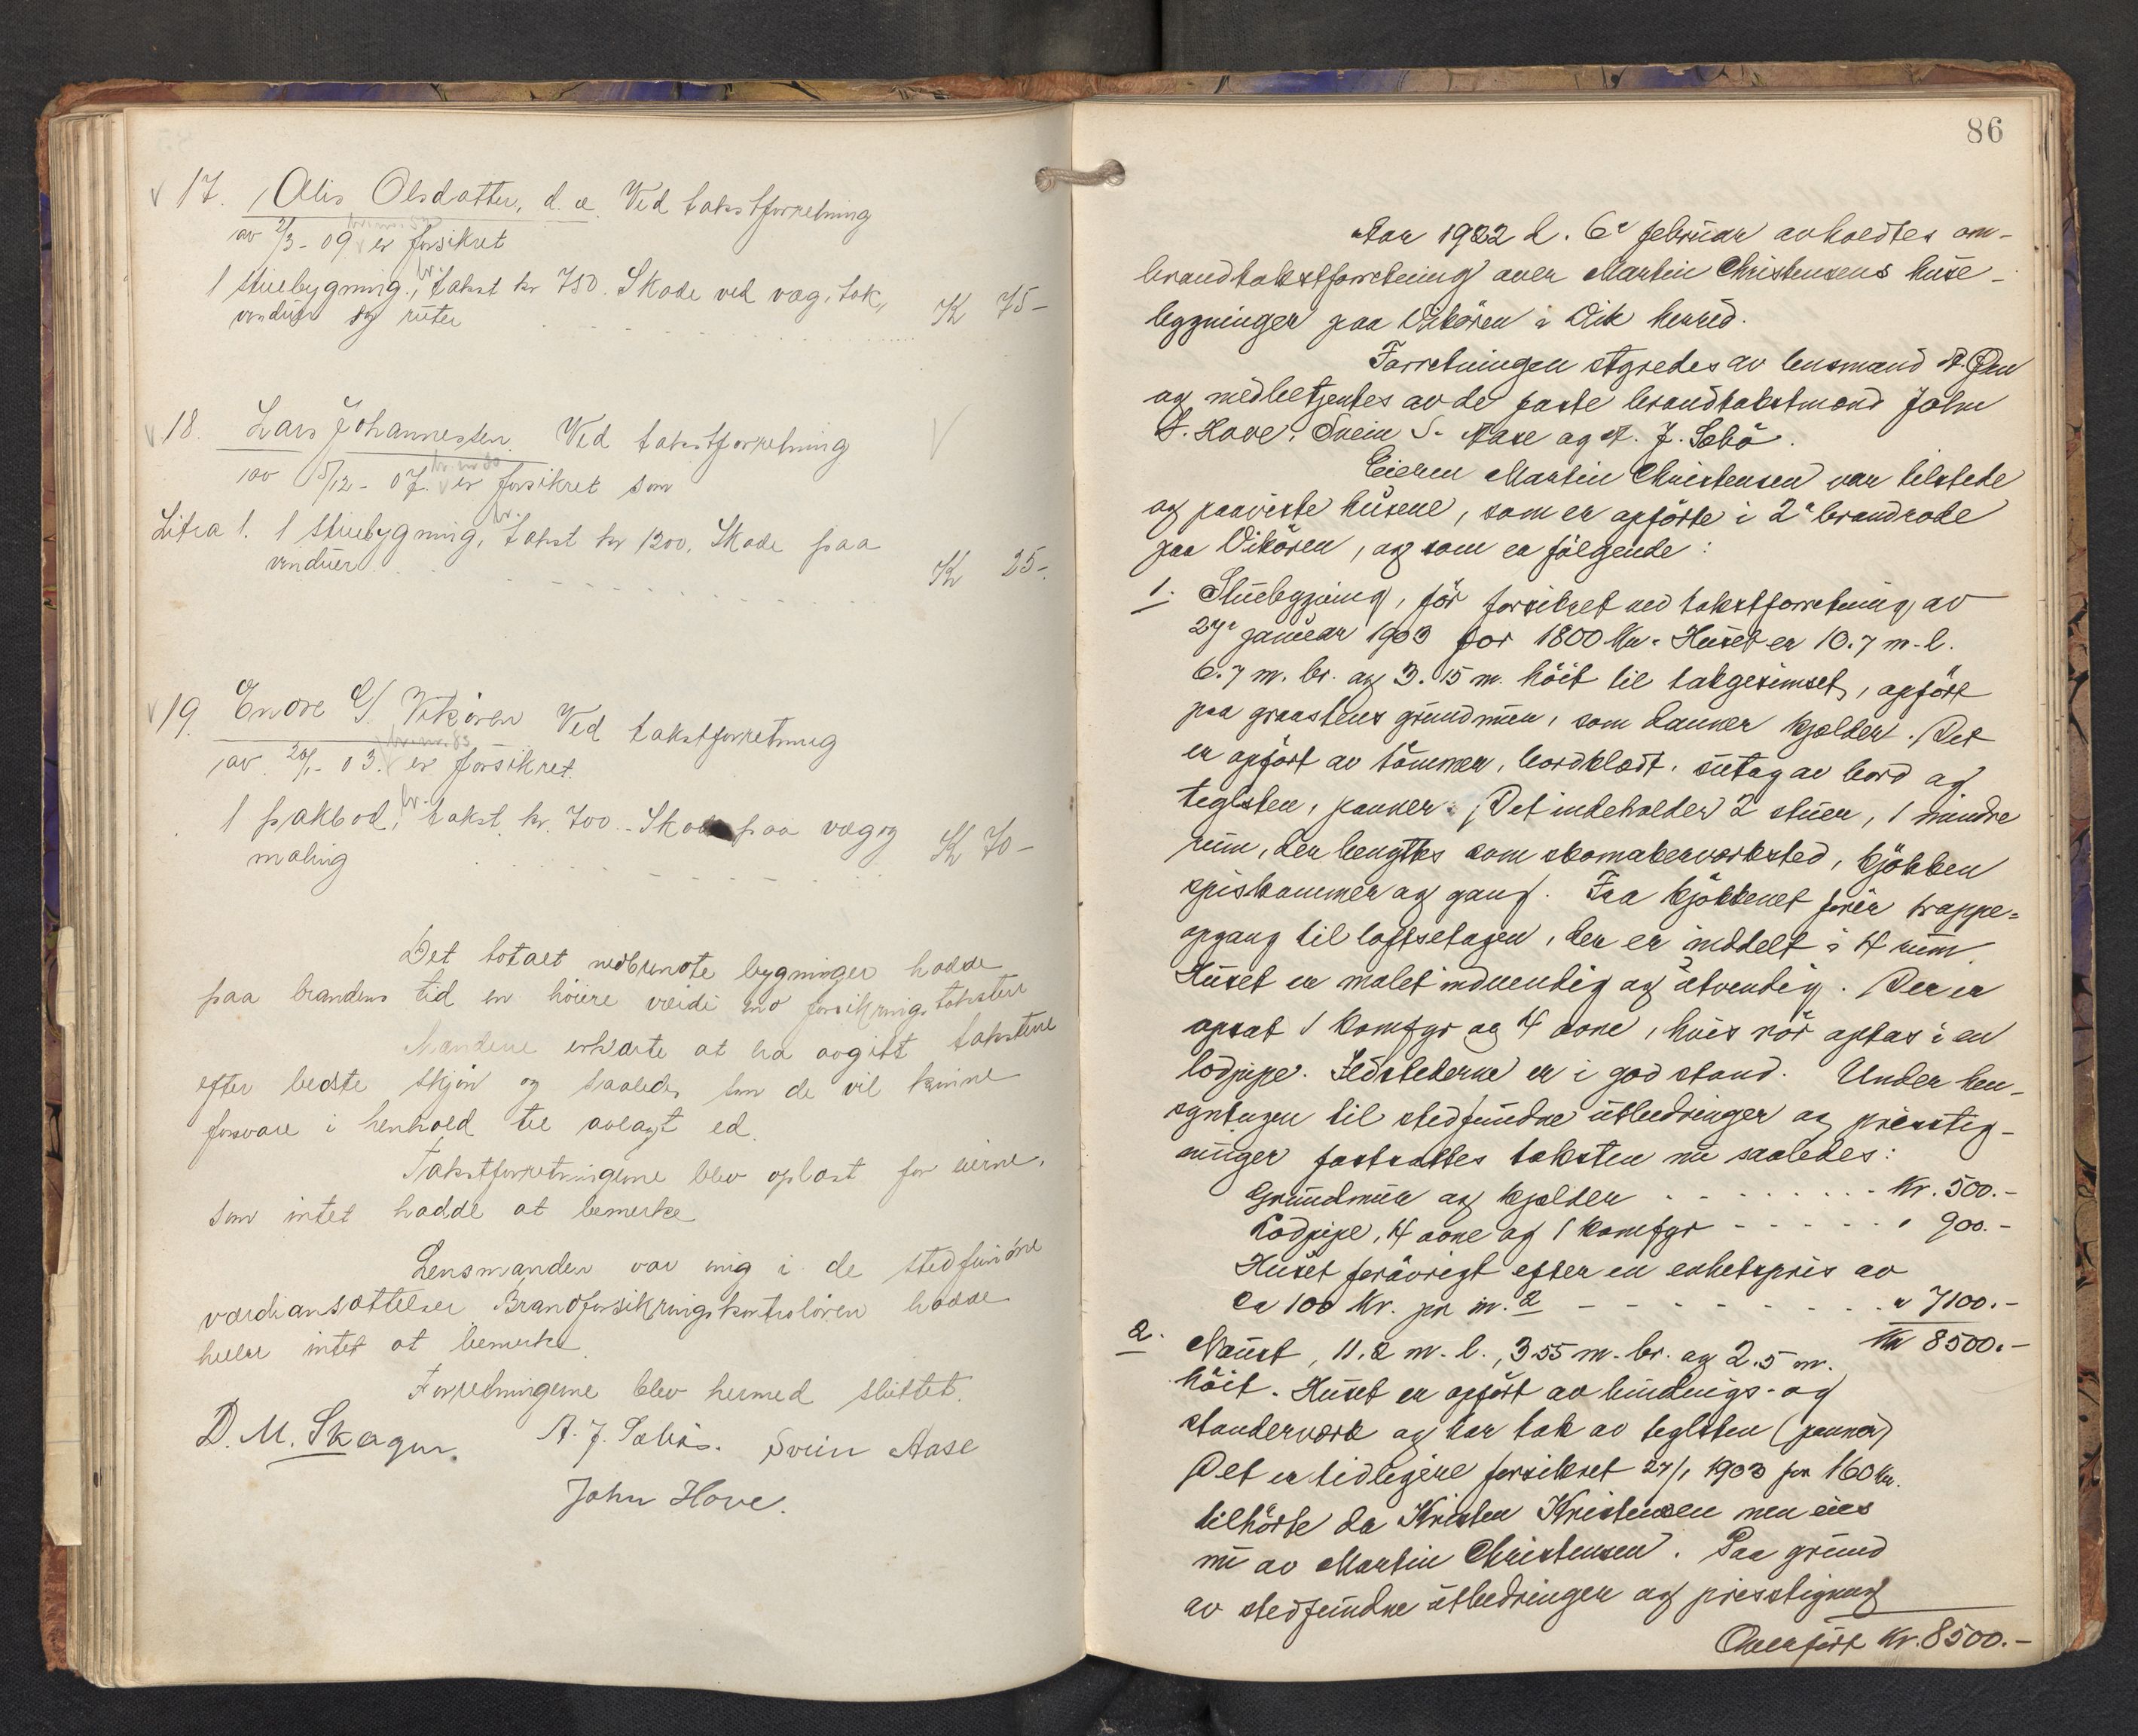 17. Olis Olsdatter, d. æ. Ved takstforretning
av 2/3-09 er forsikret
1 stuebygning, takst kr 750. Skade ved væg, tak,
vinduer og ruter Kr 75-
18. Lars Johannessen. Ved takstforretning
av 5/12-07. er forsikret som
Litra 1. 1 stuebygning, takst kr 1200, Skade paa
vinduer Kr 25-
19. Endre G. Vikören Ved takstforretning
av 28/1-03. er forsikret.
1 pakbod, takst kr. 700.- Skade paa væg og
maling Kr 70-
Det totalt nedbrændte bygninger hadde
paa brandens tid en höiere værdi end forsikringstaksten
Mændene erklærte at ha avgitt takstene
efter bedste skjön og saaledes som de vil kunne
forsvare i henhold til avlagt ed.
Takstforretningerne blev oplæst for eierne,
som intet hadde at bemerke
Lensmanden var enig i de stedfundne
værdiansættelser Brandforsikringskontrolören hadde
heller intet at bemerke
Forretningerne blev hermed sluttet.
D. M. Skagen. A. J. Sæbö. Svein Aase
John Hove.
86
Aar 1922 d. 6te februar avholdtes om-
brandtakstforretning over Martin Christensens huse-
bygninger paa Vikören i Vik herred.
Forretningen styredes av lensmand
og medbetjentes av de faste brandtakstmænd John
S. Hove, Svein S. Aase og A. J. Sæbö.
Eieren Martin Christensen var tilstede
og paaviste husene, som er opförte i 2den brandrode
paa Vikören, og som er fölgende:
1. Stuebygning, för forsikret ved takstforretning av
27de januar 1903 for 1800 Kr. Huset er 10.7 m. l.
6.7 m. br. og 3.15 m. höit til takgesimset, opfört
paa graastens grundmur, som danner kjælder. Det
er opfört av tömmer, bordklædt, sutag av bord og
teglsten, panner. Det indeholder 2 stuer, 1 mindre
rum, der benyttes som skomakerverksted, kjökken
spiskammer og gang. Fra kjökkenet förer trappe-
opgang til loftsetagen, der er inddelt i 4 rum.
Huset er malet indvendig og utvendig. Der er
opsat 1 komfyr og 4 ovne, hvis rör optas i en
lodpipe. Ildstederne er i god stand. Under hen-
syntagen til stedfundne utbedringer og prisstig-
ninger fastsattes taksten nu saaledes:
Grundmur og kjælder Kr. 500.-
Lodpipe, 4 ovne og 1 komfyr " 900.-
Huset forövrigt efter en enhetspris av
ca 100 kr. pr m.2 " 7100.-
Kr 8500.-
2. Naust, 11.2 m. l., 3.55 m. br. og 2.5 m.
höit. Huset er opfört av bindings- og
standerverk og har tak av teglsten (panner)
Det er tidligere forsikret 27/1 1903 for 160 kr.
tilhörte da Kristen Kristensen men eies
nu av Martin Christensen. Paa grund
av stedfundne utbedringer og prisstigning
Overfört Kr. 8500.-